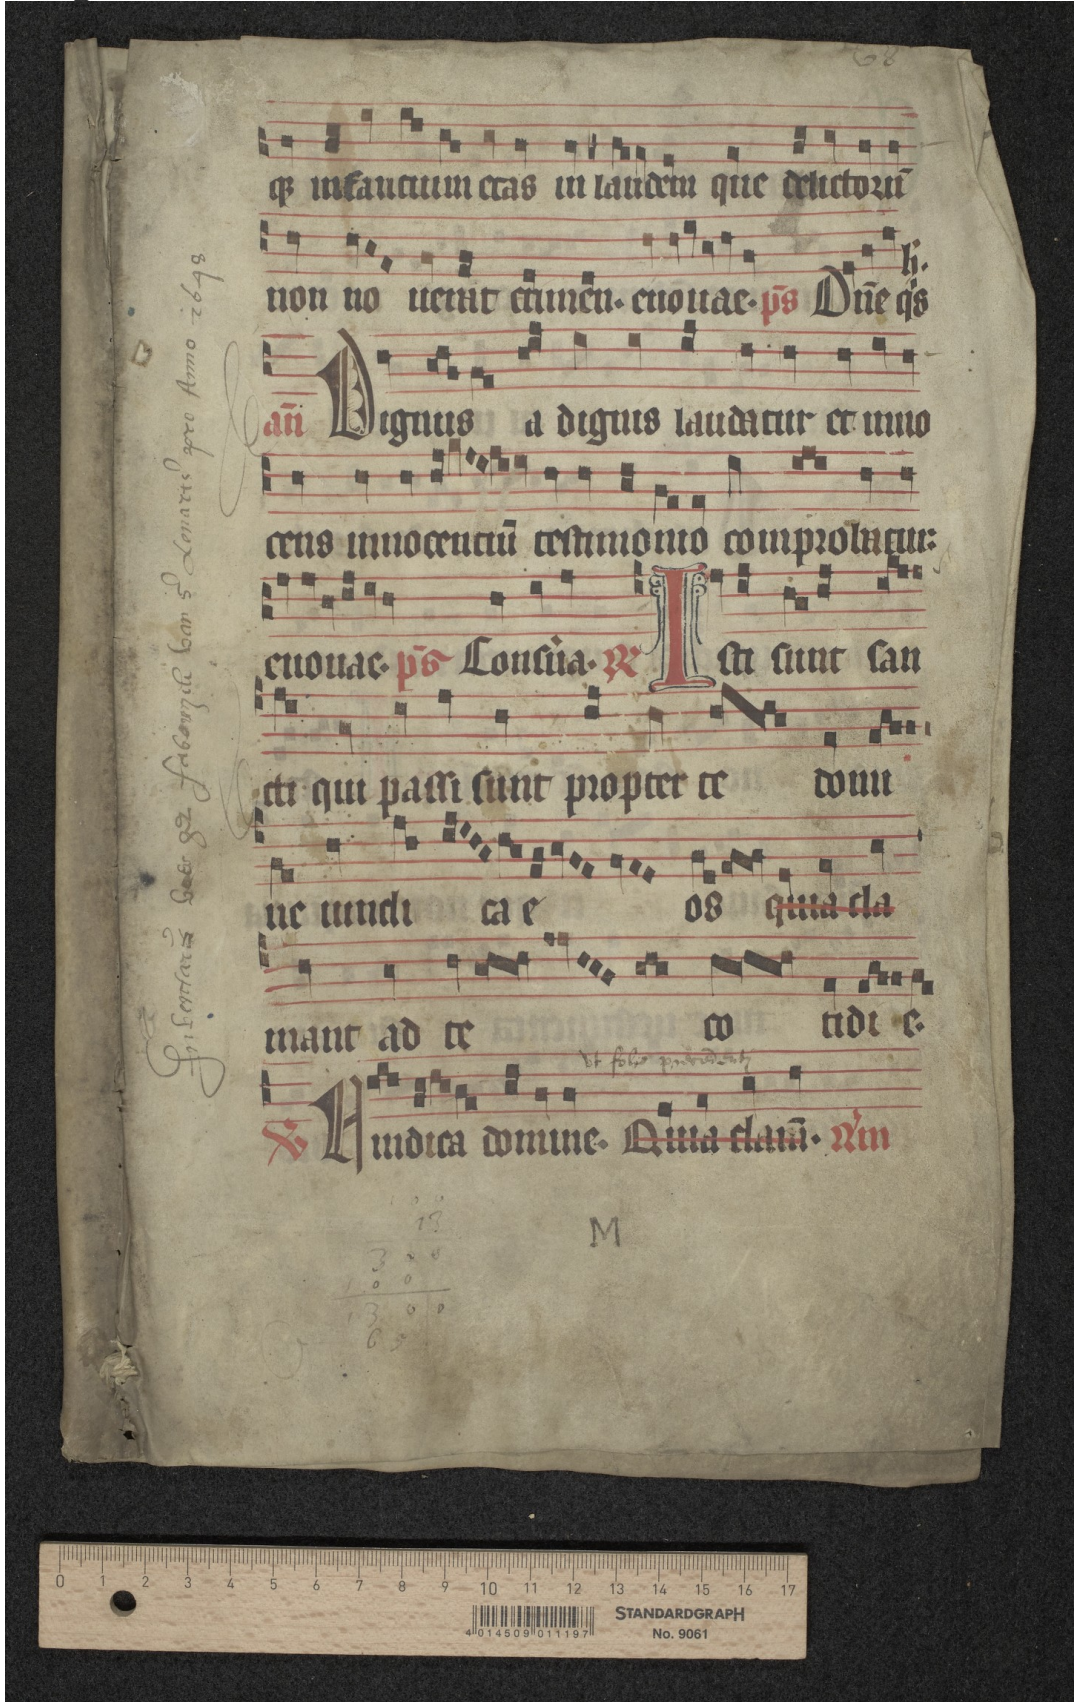 68
qꝫ infantium etas in laudem que delictoru̅
non no uerat crimen. euouae. ps̅ Dn̅e q's
an̅ Dignus a dignis laudatur et inno
cens innocentiu̅ testimonio comprobatur:
euouae. ps̅ Conserua. R̷ Isti sunt san
cti qui passi sunt propter te domi
ne uindi ca e os quia cla
mant ad te co tidi e.
vt folio precedenti
V̷ Uindica domine. Quia clama̅.
13
300
100
1300
M
Anno 1698
0 1 2 3 4 5 6 7 8 9 10 11 12 13 14 15 16 17
4 014509 011197
STANDARDGRAPH
No. 9061